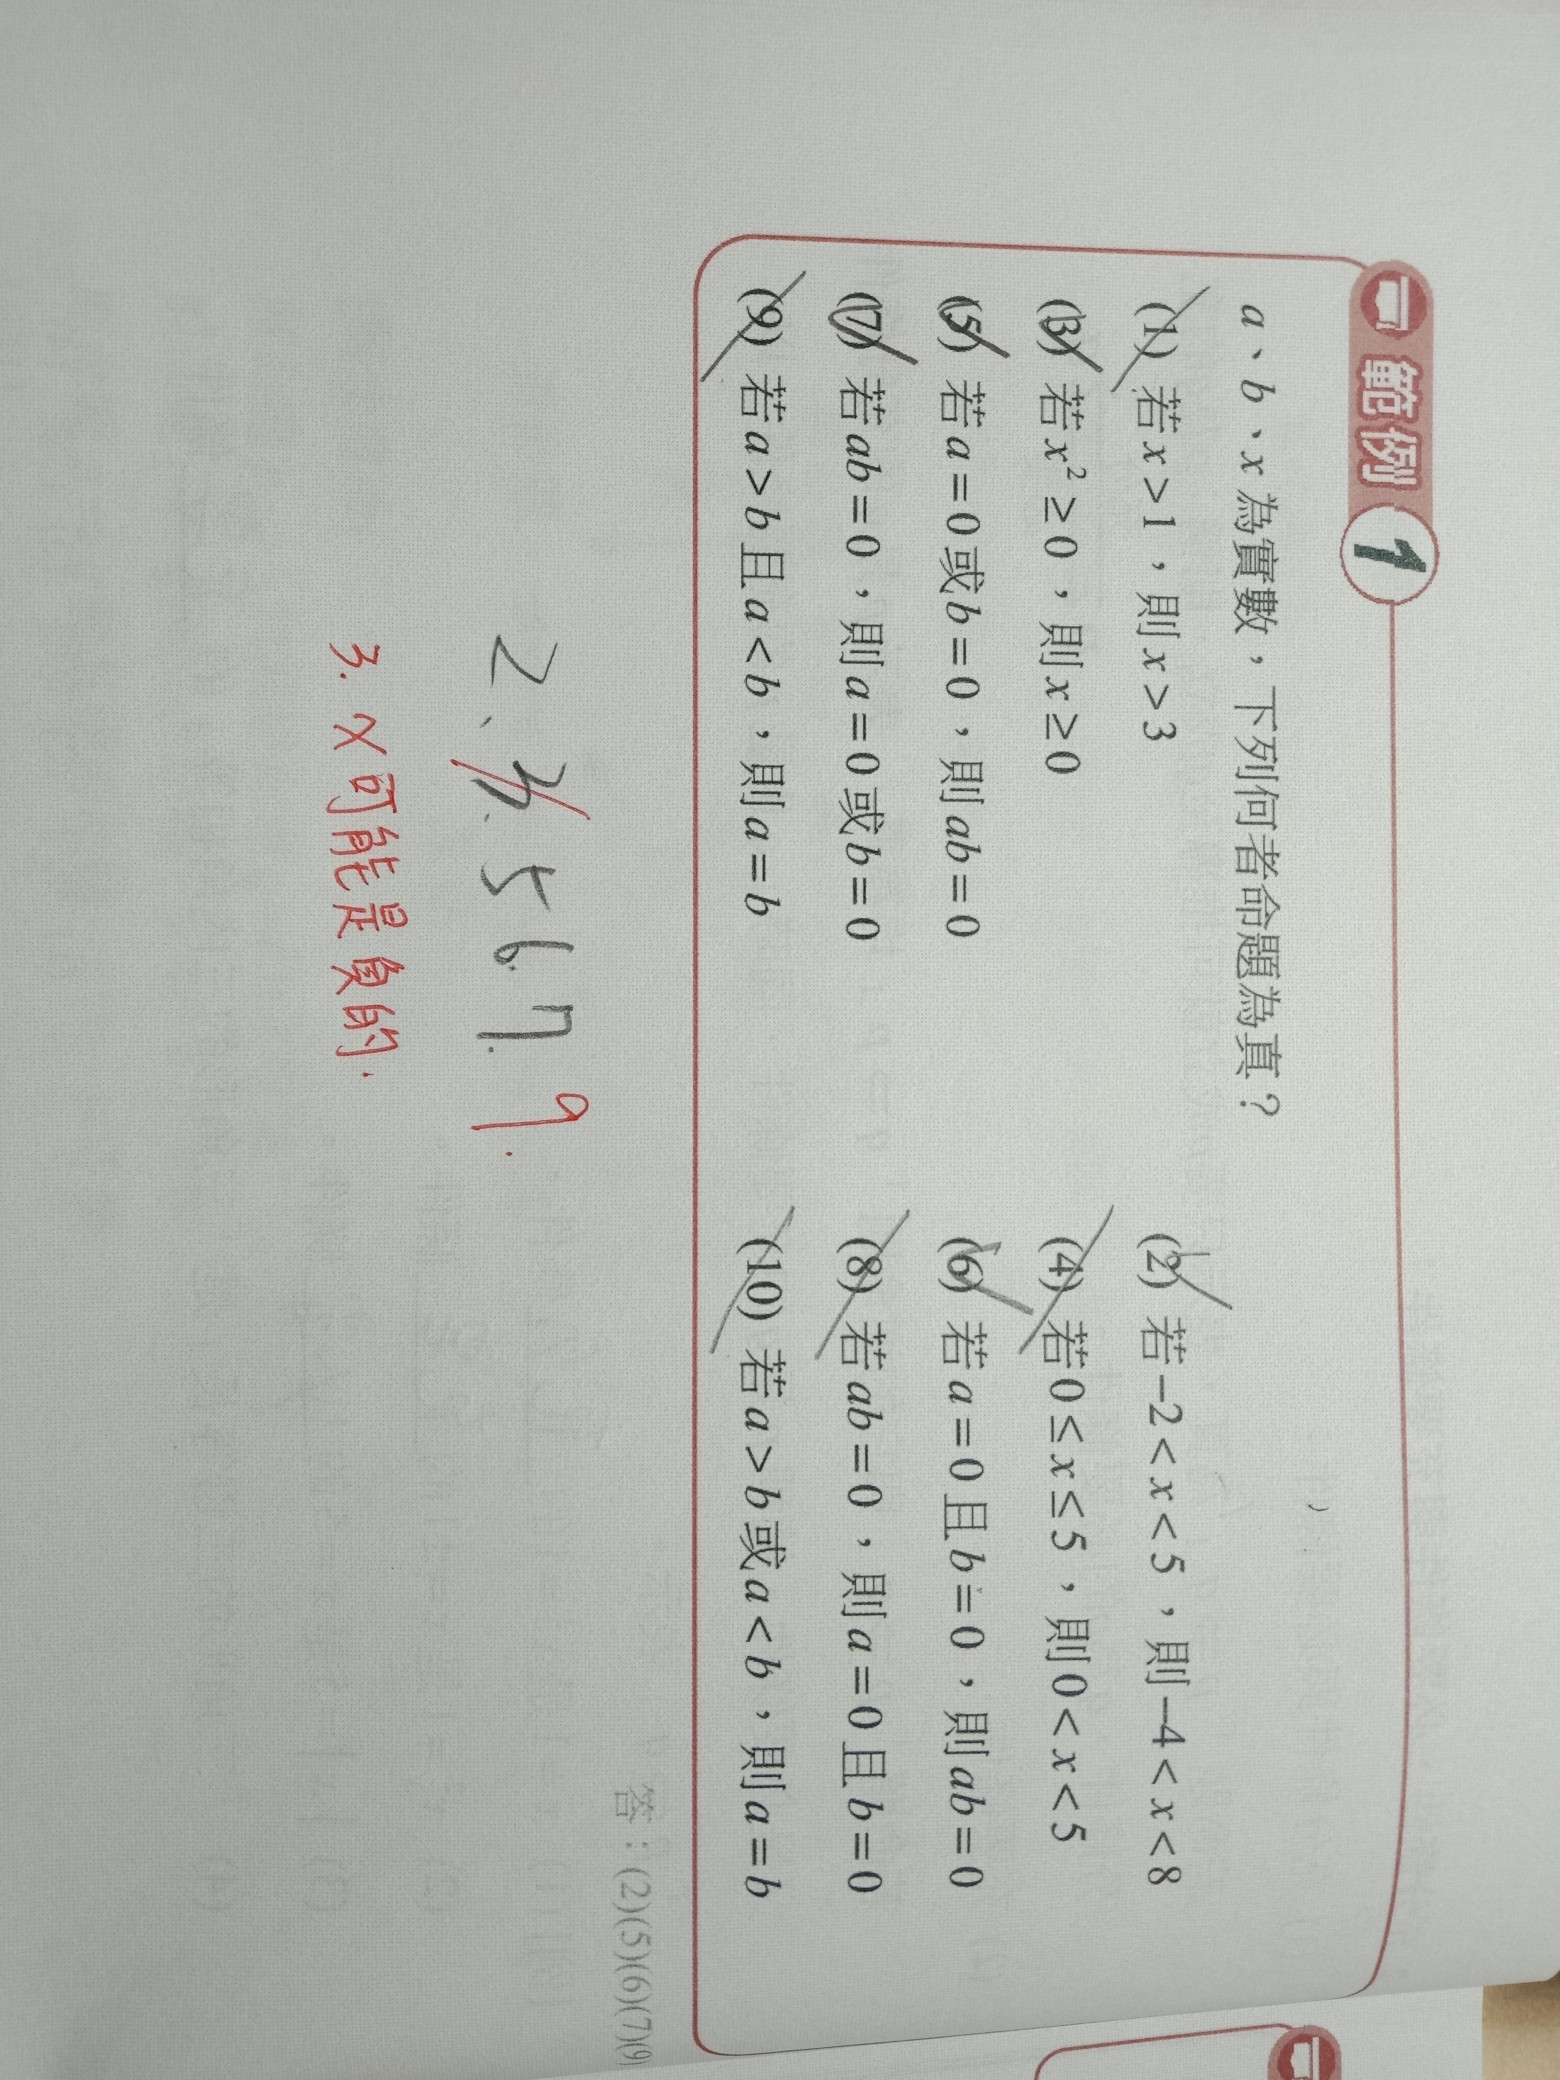 範例 1
a、b、x為實數，下列何者命題為真？
(1) 若x>1，則x>3
(2) 若−2<x<5，則−4<x<8
(3) 若x²≥0，則x≥0
(4) 若0≤x≤5，則0<x<5
(5) 若a=0或b=0，則ab=0
(6) 若a=0且b=0，則ab=0
(7) 若ab=0，則a=0或b=0
(8) 若ab=0，則a=0且b=0
(9) 若a>b且a<b，則a=b
(10) 若a>b或a<b，則a=b
答：(2)(5)(6)(7)(9)
2、3、5 6. 7. 9.
3. x可能是負的.